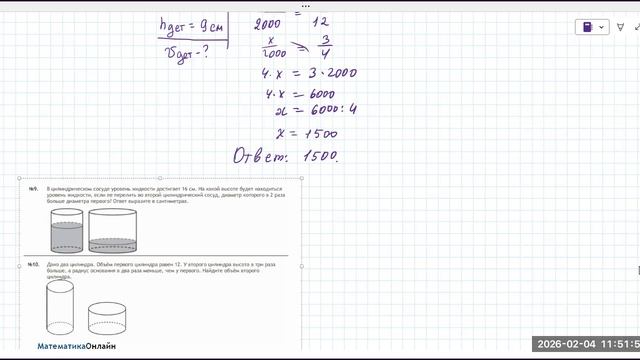 hдет = 9 см
Vдет - ?
2000 = 12
x/2000 = 3/4
4 · x = 3 · 2000
4 · x = 6000
x = 6000 : 4
x = 1500
Ответ: 1500.
№9. В цилиндрическом сосуде уровень жидкости достигает 16 см. На какой высоте будет находиться
уровень жидкости, если ее перелить во второй цилиндрический сосуд, диаметр которого в 2 раза
больше диаметра первого? Ответ выразите в сантиметрах.
№10. Дано два цилиндра. Объём первого цилиндра равен 12. У второго цилиндра высота в три раза
больше, а радиус основания в два раза меньше, чем у первого. Найдите объём второго
цилиндра.
МатематикаОнлайн
2026-02-04 11:51:5